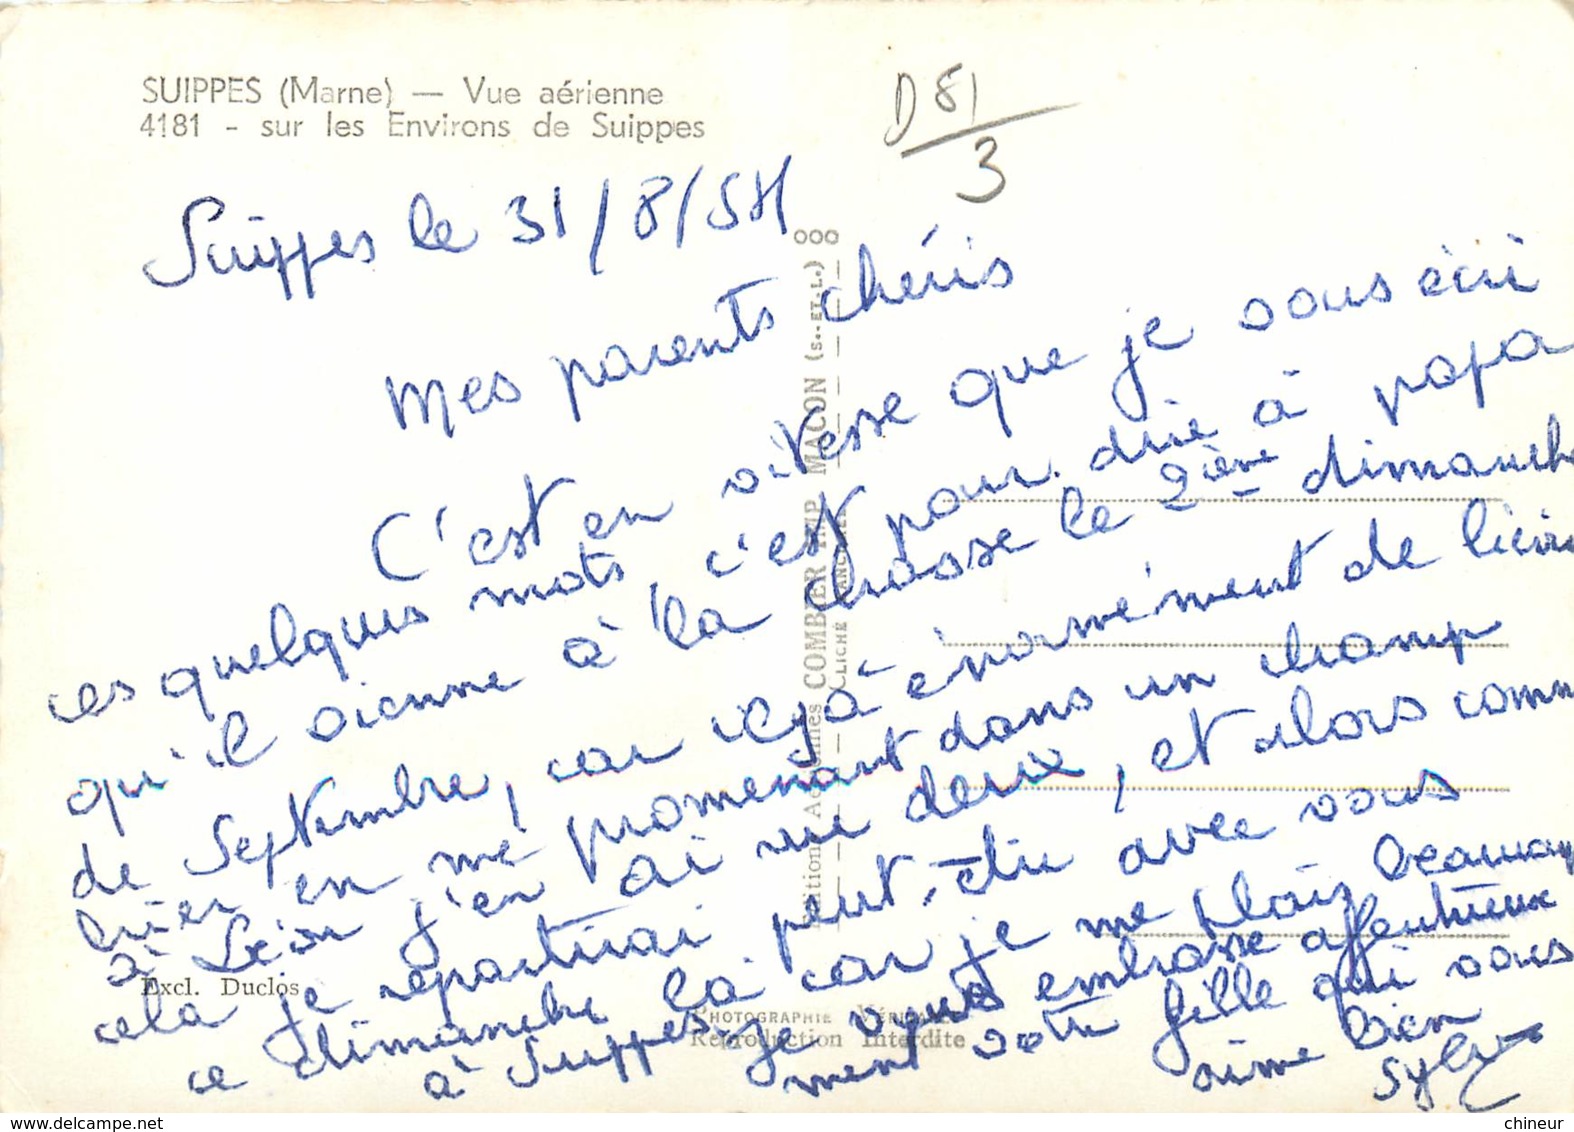 SUIPPES (Marne) — Vue aérienne
4181 - sur les Environs de Suippes
D 81
3
Suippes le 31/8/58
Mes parents chéris
C'est en vitesse que je vous écri
ces quelques mots, c'est pour dire à papa
qu'il vienne à la chasse le 2ième dimanche
de Septembre, car il y à énormément de lièvre
hier en me promenant dans un champ
à Léon j'en ai vue deux, et alors comm
cela je repartirai peut-être avec vous
ce dimanche là car je me plais beaucoup
à Suippes. Je vous embrasse affectueuse
ment votre fille qui vous
aime bien
Sylvie
Editions Aériennes COMBIER IMP. MACON (S.-ET-L.)
CLICHÉ
Excl. Duclos
PHOTOGRAPHIE VÉRITABLE
Reproduction Interdite
chineur
www.delcampe.net